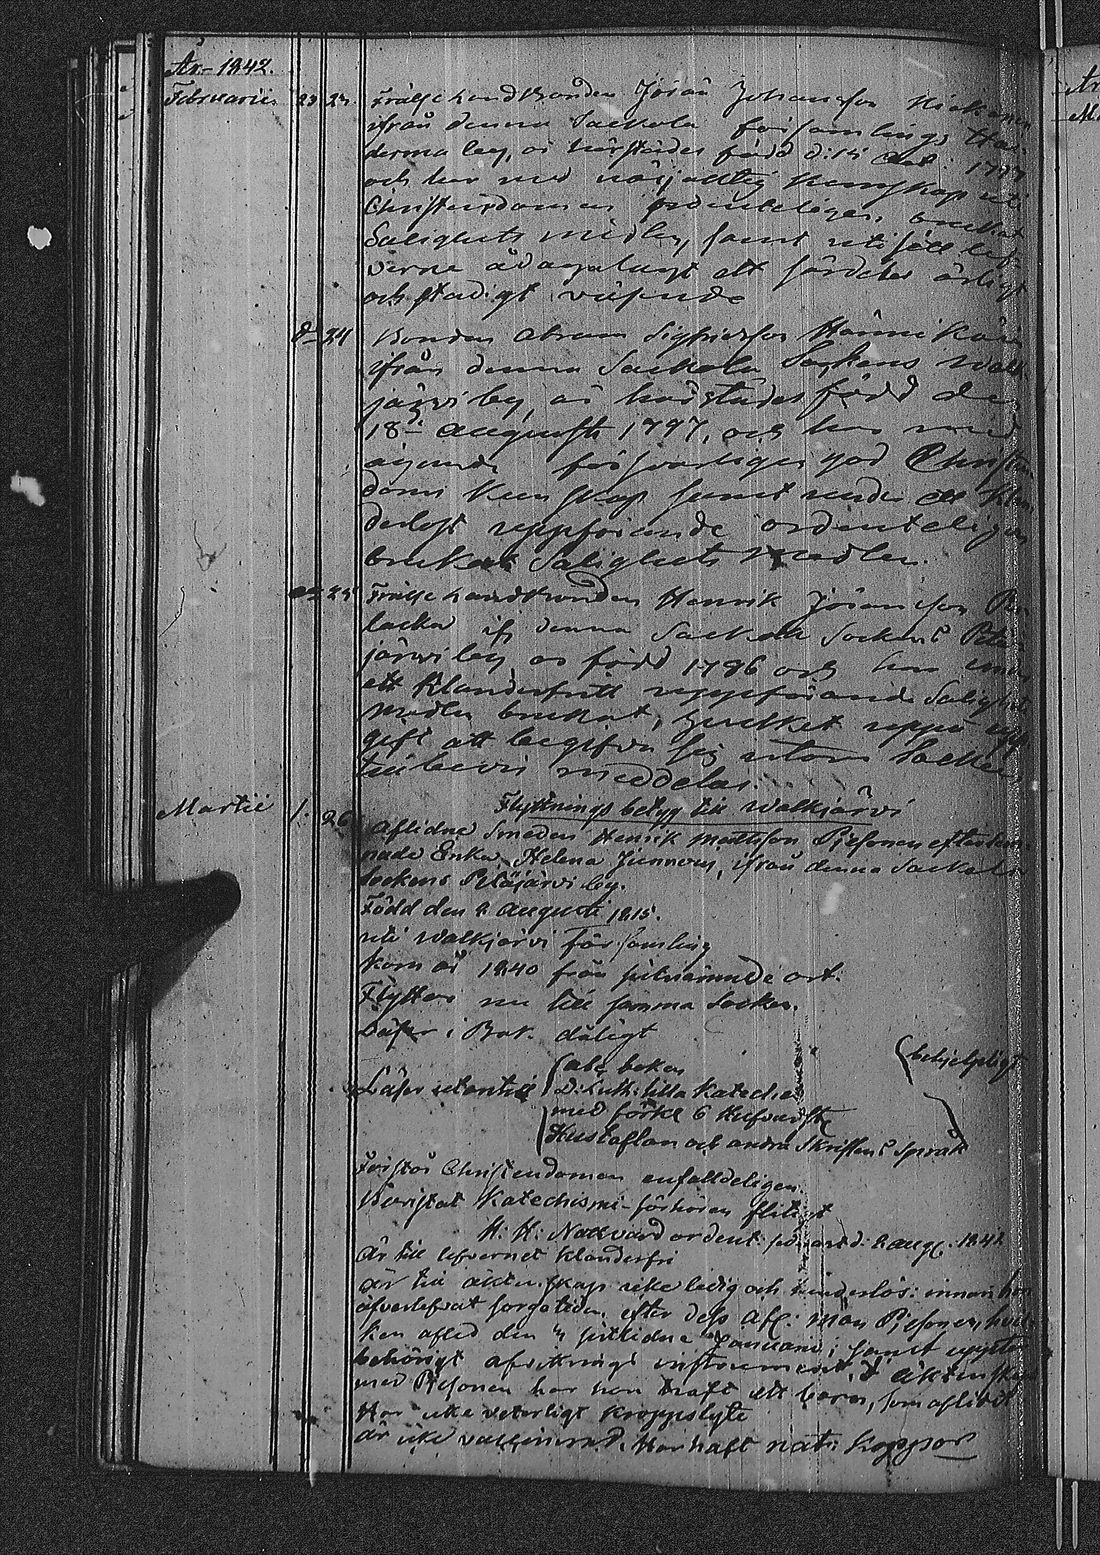 År 1842.
Februarii 23 23 Frälse landbonden Jöran Johansson
ifrån denna Sackola församlings
by, är härstädes född d: 15 Oct 1777
och har med nöjaktig kunskap uti
Christendomen ordenteligen brukat
Salighets medlen, samt uti sitt lef-
verne ådagalagt ett särdeles ärligt
och stadigt väsende
d 24 Bonden Abram Sigfridsson Hännikäin
ifrån denna Sackola Sockens Walk
järvi by, är härstädes född den
18de Augusti 1797, och har med
ägande försvarliges god Christen
doms kunskap samt under ett klan
derlöst uppförande ordenteligen
brukat Salighets medlen.
25 Frälse landbonden Henrik Jöransson
ifr denna Sackola Sockens Petä
järvi by är född 1786 och har under
ett klanderfritt uppförande Salighets
medlen brukat, hvilket uppå upp
gift att begifva sig utom Socken
till bevis meddelas.
Martii 1. 26 Flyttnings betyg till Walkjärvi
Aflidne Smeden Henrik Mattsson Pjesonen efterlem-
nade Enka Helena Jünnen, ifrån denna Sackola
Sockens Petäjärvi by.
Född den 2 Augusti 1815.
uti Walkjärvi Församling
Kom år 1840 från sistnämnde ort.
Flyttar nu till samma Socken.
Läser i Bok dåligt
abc boken
behjelpligt
Läser utantill D: Luth: lilla Kateches
med förkl 6 Hufvudst
Hustaflan och andra Skriftens Språk
Förstår Christendomen enfaldeligen
Bevistat Katechismi-förhören flitigt
H: H: Nattvard ordent: senast d: 2 Aug. 1841
Är till lefvernet klanderfri
är till äktenskap icke ledig och hinderlös: innan hon
öfverlefvat sorgetiden efter dess afl: man Pjesonen, hvil
ken afled den 4 sistlidne Januarii, samt
behörigt afvittrings instrument, i äktenskap
med Pjesonen har hon haft ett barn, som aflidit
Har icke veterligt kroppslyte
är icke vaccinerad. Har haft nat: koppor